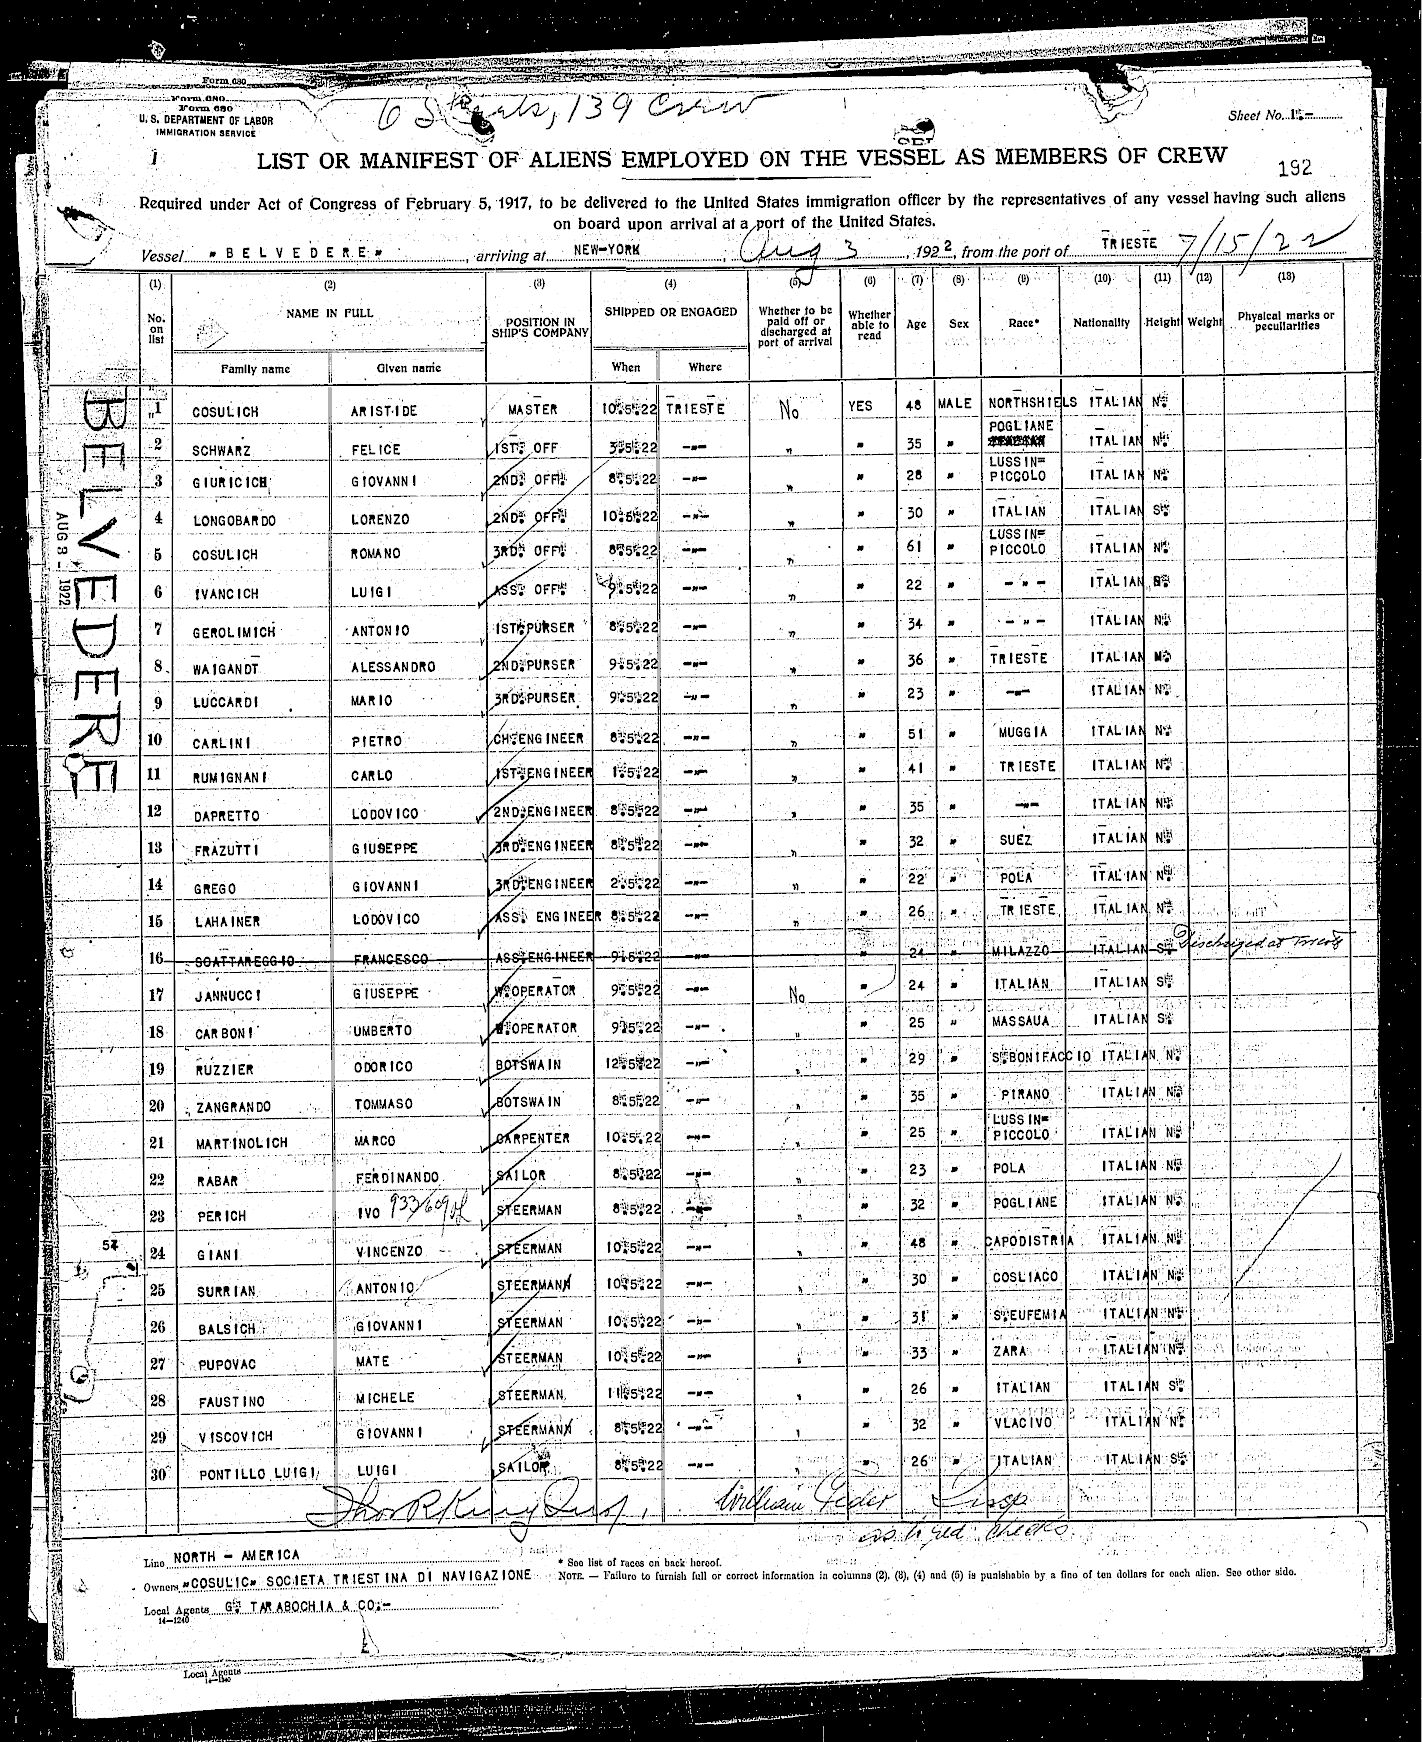 Form 680
Form 680
Form 680
U. S. DEPARTMENT OF LABOR
IMMIGRATION SERVICE
139 Crew
Sheet No. 1.-
LIST OR MANIFEST OF ALIENS EMPLOYED ON THE VESSEL AS MEMBERS OF CREW
192
Required under Act of Congress of February 5, 1917, to be delivered to the United States immigration officer by the representatives of any vessel having such aliens
on board upon arrival at a port of the United States.
Vessel "BELVEDERE", arriving at NEW-YORK, Aug 3, 1922, from the port of TRIESTE 7/15/22
(1) (2) (3) (4) (5) (6) (7) (8) (9) (10) (11) (12) (13)
No. on list NAME IN FULL POSITION IN SHIP'S COMPANY SHIPPED OR ENGAGED Whether to be paid off or discharged at port of arrival Whether able to read Age Sex Race* Nationality Height Weight Physical marks or peculiarities
Family name Given name When Where
1 COSULICH ARISTIDE MASTER 10.5.22 TRIESTE No YES 48 MALE NORTHSHIELS ITALIAN N.
2 SCHWARZ FELICE 1ST. OFF 3.5.22 -"- " " 35 " POGLIANE ITALIAN N.
3 GIURICICH GIOVANNI 2ND. OFF. 8.5.22 -"- " " 28 " LUSSIN= PICCOLO ITALIAN N.
4 LONGOBARDO LORENZO 2ND. OFF. 10.5.22 -"- " " 30 " ITALIAN ITALIAN S.
5 COSULICH ROMANO 3RD. OFF. 8.5.22 -"- " " 61 " LUSSIN= PICCOLO ITALIAN N.
6 IVANCICH LUIGI ASS. OFF. 9.5.22 -"- " " 22 " -"- ITALIAN
7 GEROLIMICH ANTONIO 1ST.PURSER 8.5.22 -"- " " 34 " -"- ITALIAN N.
8 WAIGANDT ALESSANDRO 2ND.PURSER 9.5.22 -"- " " 36 " TRIESTE ITALIAN N.
9 LUCCARDI MARIO 3RD.PURSER 9.5.22 -"- " " 23 " -"- ITALIAN N.
10 CARLINI PIETRO CH.ENGINEER 8.5.22 -"- " " 51 " MUGGIA ITALIAN N.
11 RUMIGNANI CARLO 1ST.ENGINEER 1.5.22 -"- " " 41 " TRIESTE ITALIAN N.
12 DAPRETTO LODOVICO 2ND.ENGINEER 8.5.22 -"- " " 35 " -"- ITALIAN N.
13 FRAZUTTI GIUSEPPE 3RD.ENGINEER 8.5.22 -"- " " 32 " SUEZ ITALIAN N.
14 GREGO GIOVANNI 3RD.ENGINEER 2.5.22 -"- " " 22 " POLA ITALIAN N.
15 LAHAINER LODOVICO ASS. ENGINEER 8.5.22 -"- " " 26 " TRIESTE ITALIAN N.
16 SCATTAREGGIO FRANCESCO ASS.ENGINEER 9.5.22 -"- " 24 " MILAZZO ITALIAN S. Discharged at Trieste
17 JANNUCCI GIUSEPPE W.OPERATOR 9.5.22 -"- No " 24 " ITALIAN ITALIAN S.
18 CARBONI UMBERTO W.OPERATOR 9.5.22 -"- " " 25 " MASSAUA ITALIAN S.
19 RUZZIER ODORICO BOTSWAIN 12.5.22 -"- " " 29 " S.BONIFACCIO ITALIAN N.
20 ZANGRANDO TOMMASO BOTSWAIN 8.5.22 -"- " " 35 " PIRANO ITALIAN N.
21 MARTINOLICH MARCO CARPENTER 10.5.22 -"- " " 25 " LUSSIN= PICCOLO ITALIAN N.
22 RABAR FERDINANDO SAILOR 8.5.22 -"- " " 23 " POLA ITALIAN N.
23 PERICH IVO STEERMAN 8.5.22 -"- " " 32 " POGLIANE ITALIAN N.
24 GIANI VINCENZO STEERMAN 10.5.22 -"- " " 48 " CAPODISTRIA ITALIAN N.
25 SURRIAN ANTONIO STEERMANN 10.5.22 -"- " " 30 " COSLIACO ITALIAN N.
26 BALSICH GIOVANNI STEERMAN 10.5.22 -"- " " 31 " S.EUFEMIA ITALIAN N.
27 PUPOVAC MATE STEERMAN 10.5.22 -"- " " 33 " ZARA ITALIAN N.
28 FAUSTINO MICHELE STEERMAN 11.5.22 -"- " " 26 " ITALIAN ITALIAN S.
29 VISCOVICH GIOVANNI STEERMANN 8.5.22 -"- " " 32 " VLACIVO ITALIAN N.
30 PONTILLO LUIGI LUIGI SAILOR 8.5.22 -"- " " 26 " ITALIAN ITALIAN S.
BELVEDERE
AUG 3 - 1922
Thos R King Insp. William Feder Insp
checks
Line NORTH - AMERICA
* See list of races on back hereof.
Owners "COSULIC" SOCIETA TRIESTINA DI NAVIGAZIONE
NOTE. — Failure to furnish full or correct information in columns (2), (3), (4) and (5) is punishable by a fine of ten dollars for each alien. See other side.
Local Agents G. TARABOCHIA & CO.-
14—1240
Local Agents
14—1240